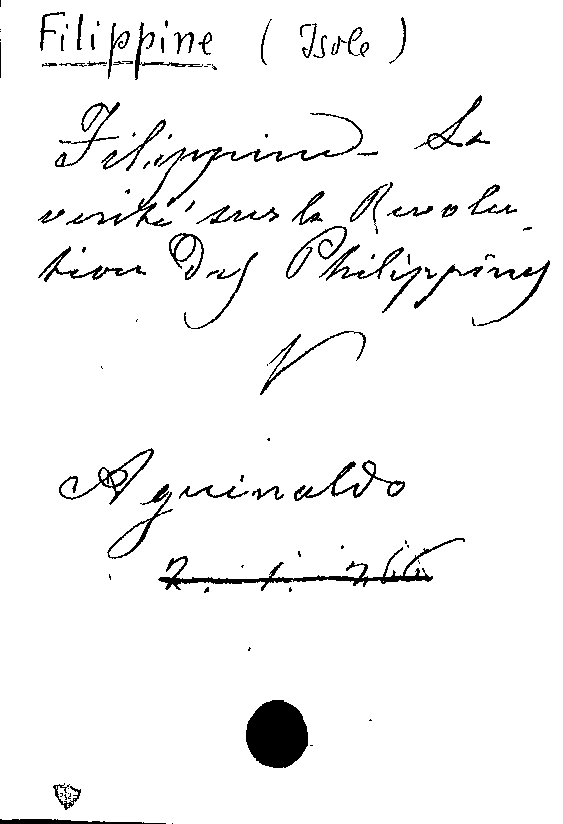 Filippine (Isole)
Filippine - La
verité sur la Revolu-
tion des Philippines
V
Aguinaldo
2. 1. 266